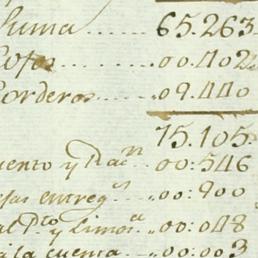 Suma...... 65.263
Cofos........00.402
Corderos.....09.440
75.105.
uento y Racⁿ 00:546
jas entregˢ..00:900
al Pᵗᵒ y Limosᵃ..00:048
la cuenta...00:003